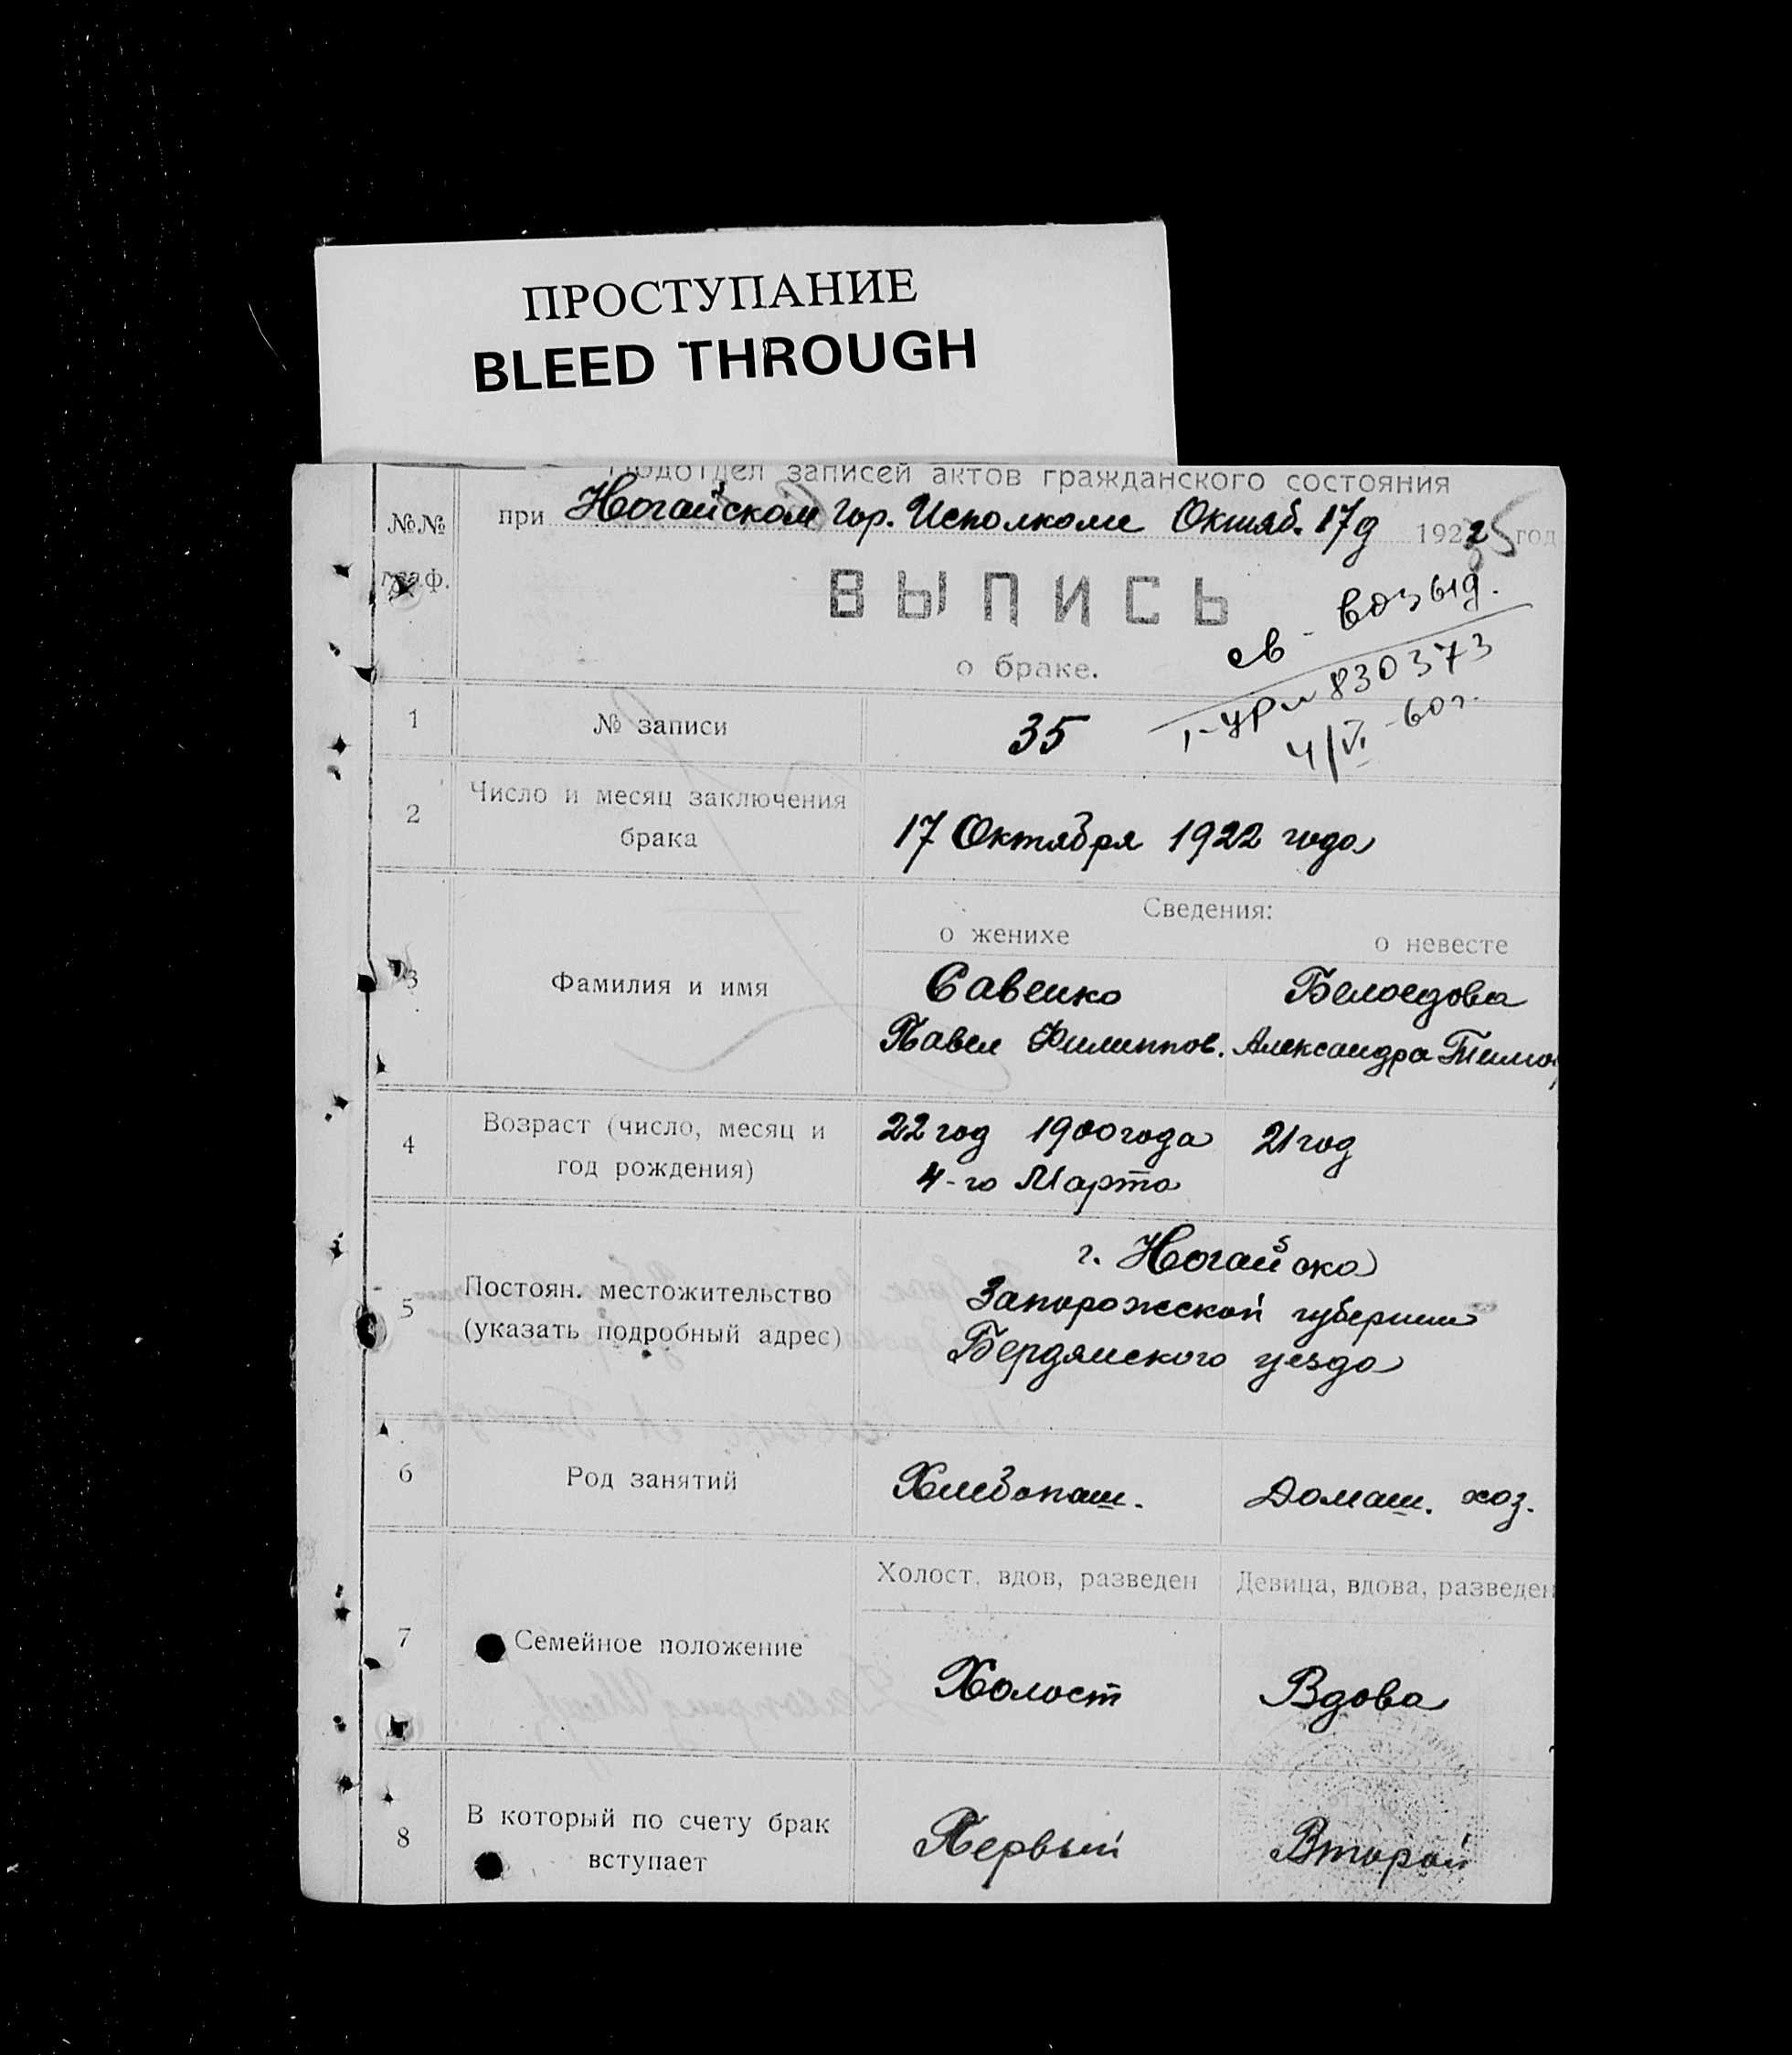 ПРОСТУПАНИЕ
BLEED THROUGH
Подотдел записей актов гражданского состояния
№№ граф.
при Ногайском Гор. Исполкоме Октяб. 17д 1922 год
35
ВЫПИСЬ
о браке.
св - возыд.
830373
4/VI - 60г.
1 № записи 35
2 Число и месяц заключения
брака
17 Октября 1922 года
Сведения:
о женихе о невесте
3 Фамилия и имя
Савенко Белоедова
Павел Филиппов. Александра Тимо
4 Возраст (число, месяц и
год рождения)
22 год 1900 года 21 год
4-го Марта
5 Постоян. местожительство
(указать подробный адрес)
г. Ногайска
Запорожской губернии
Бердянского уезда
6 Род занятий Хлебопаш. Домаш. хоз.
Холост, вдов, разведен Девица, вдова, разведен
7 Семейное положение
Холост Вдова
8 В который по счету брак
вступает
Первый Второй